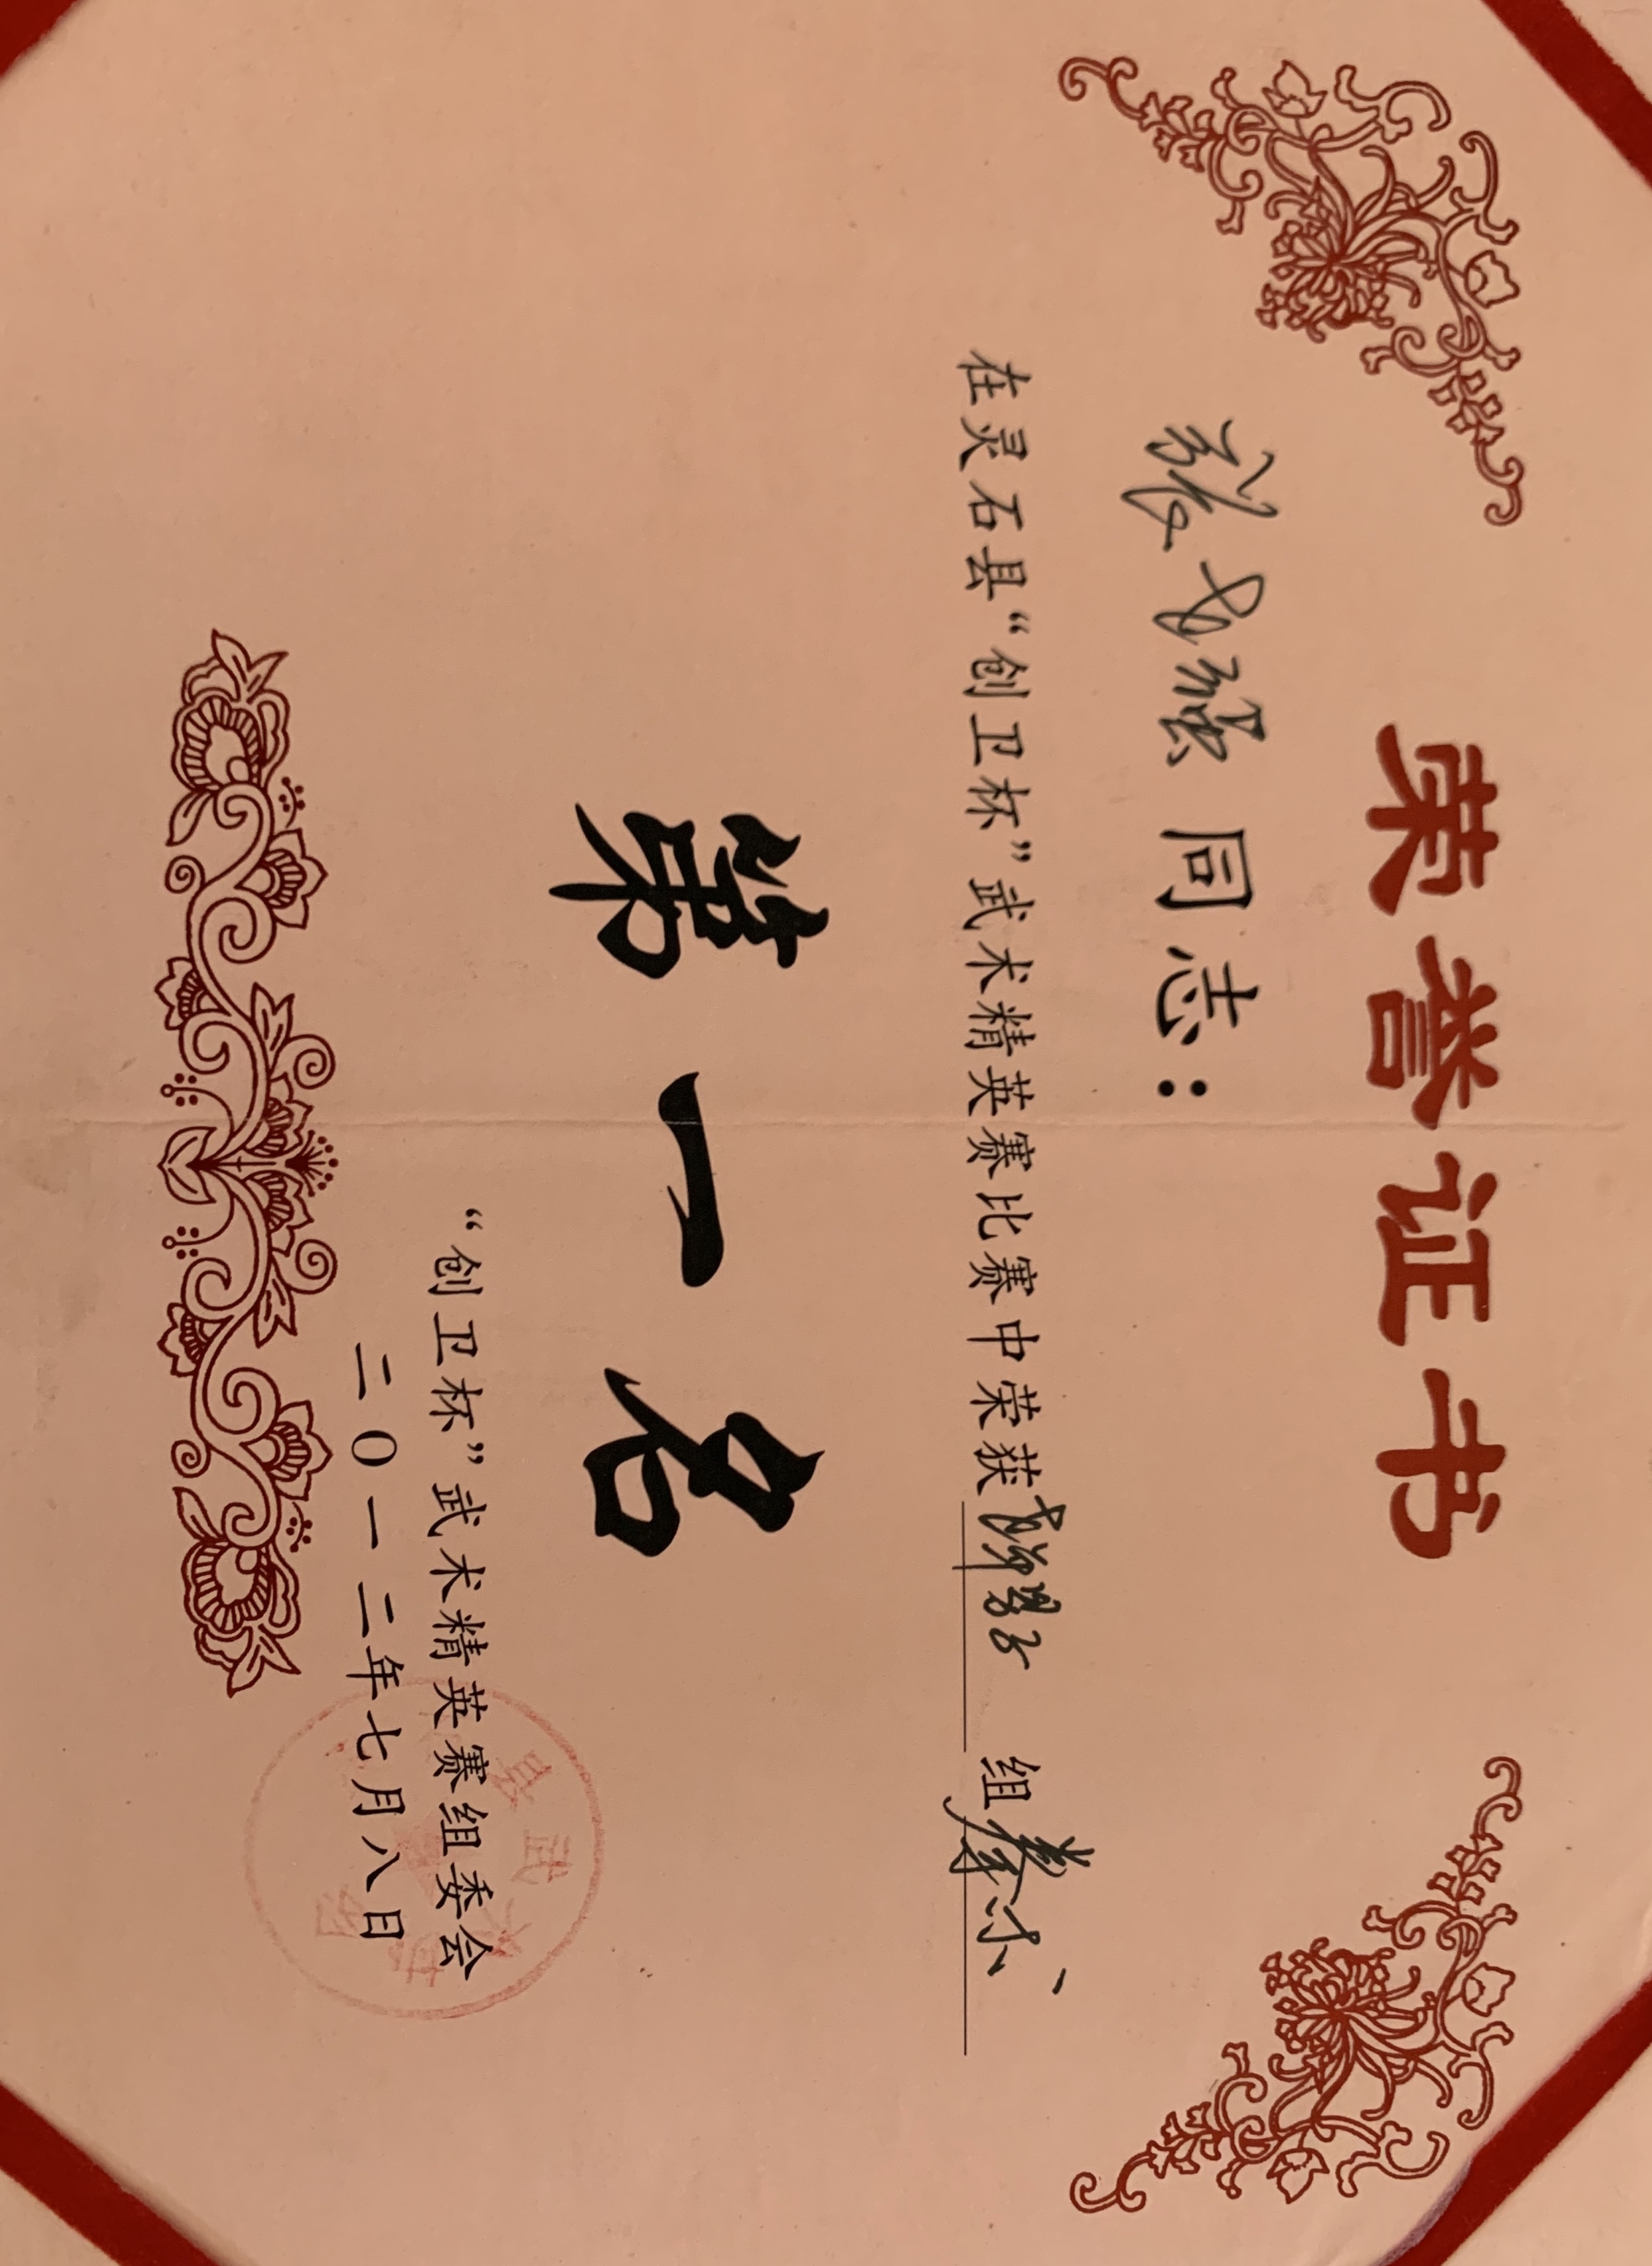 荣誉证书
张 强 同志：
在灵石县“创卫杯”武术精英赛比赛中荣获 男子 组 拳术
第一名
“创卫杯”武术精英赛组委会
二〇一二年七月八日
县武术